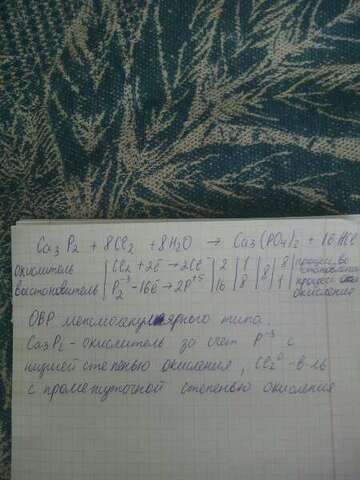 Ca3P2 + 8Cl2 + 8H2O → Ca3(PO4)2 + 16HCl
окислитель | Cl2 + 2ē → 2Cl⁻ | 2 | 1 | 8 | 8 | процесс во
востановитель | P2⁻³ - 16ē → 2P⁺⁵ | 16 | 8 | | 1 | процесс окисления
ОВР межмолекулярного типа.
Ca3P2 - окислитель за счет P⁻³ с
низшей степенью окисления, Cl2⁰ - в-ль
с промежуточной степенью окисления